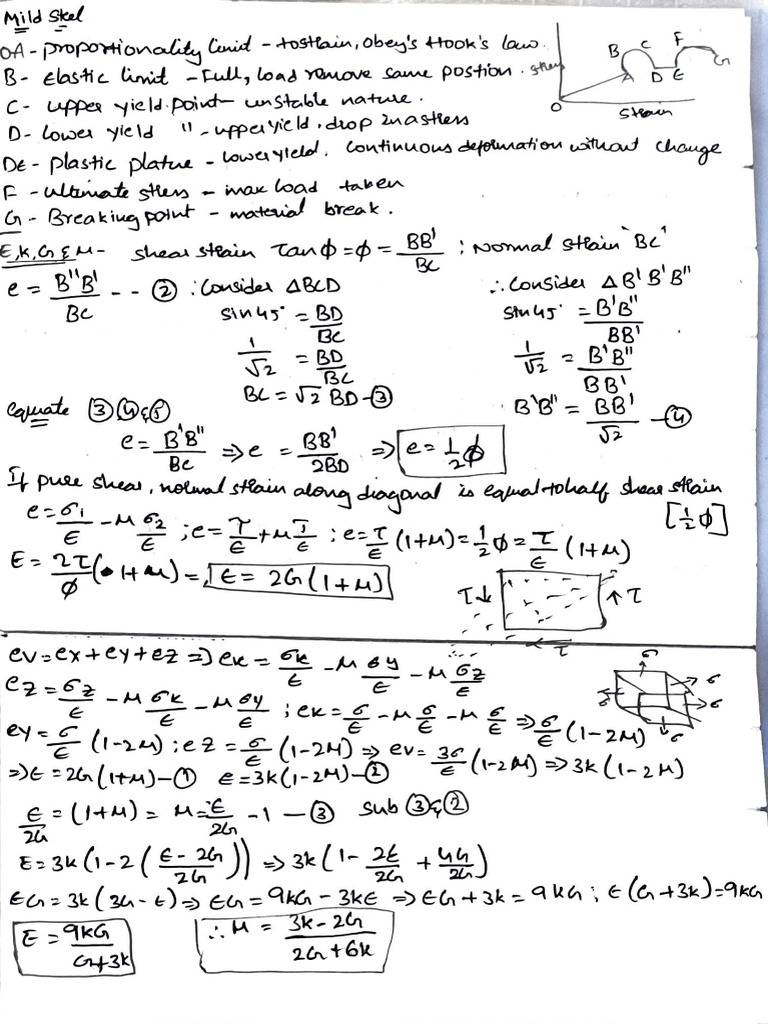 Mild Steel
OA - proportionality limit - to strain, obey's Hook's law.
B - Elastic limit - Full, load remove same postion.
C - upper yield point - unstable nature.
D - Lower yield " - upper yield, drop in a stress
DE - plastic platue - lower yield. Continuous deformation without change
F - ultimate stress - max load taken
G - Breaking point - material break.
B C F G
A D E
O Strain
E,K,G & μ - shear strain Tanϕ = ϕ = BB'/BC ; Normal strain "BC"
e = B"B'/BC -- ② : Consider ΔBCD ∴ Consider Δ B'B'B"
sin45° = BD/BC sin45° = B'B"/BB'
1/√2 = BD/BC 1/√2 = B'B"/BB'
BC = √2 BD - ③ B'B" = BB'/√2 - ④
equate ③ ④ & ⑤
e = B'B"/BC ⇒ e = BB'/2BD ⇒ e = 1/2 ϕ
If pure shear, normal strain along diagonal is equal to half shear strain [1/2 ϕ]
e = σ1/E - μ σ2/E ; e = τ/E + μ τ/E ; e = τ/E (1+μ) = 1/2 ϕ = τ/E (1+μ)
E = 2τ/ϕ (1+μ) = E = 2G(1+μ)
τ↓ ↑τ
τ
ev = ex+ey+ez ⇒ ex = σx/E - μ σy/E - μ σz/E
ez = σz/E - μ σx/E - μ σy/E ; ex = σ/E - μ σ/E - μ σ/E ⇒ σ/E (1-2μ)
ey = σ/E (1-2μ) ; ez = σ/E (1-2μ) ⇒ ev = 3σ/E (1-2μ) ⇒ 3K(1-2μ)
σ σ σ σ σ
⇒ E = 2G(1+μ) - ① e = 3K(1-2μ) - ②
E/2G = (1+μ) = μ = E/2G - 1 - ③ sub ③ & ②
E = 3K(1-2(E-2G/2G)) ⇒ 3K(1 - 2E/2G + 4G/2G)
EG = 3K(3G-E) ⇒ EG = 9KG - 3KE ⇒ EG + 3K = 9KG ; E(G+3K) = 9KG
E = 9KG/G+3K ∴ μ = 3K-2G/2G+6K